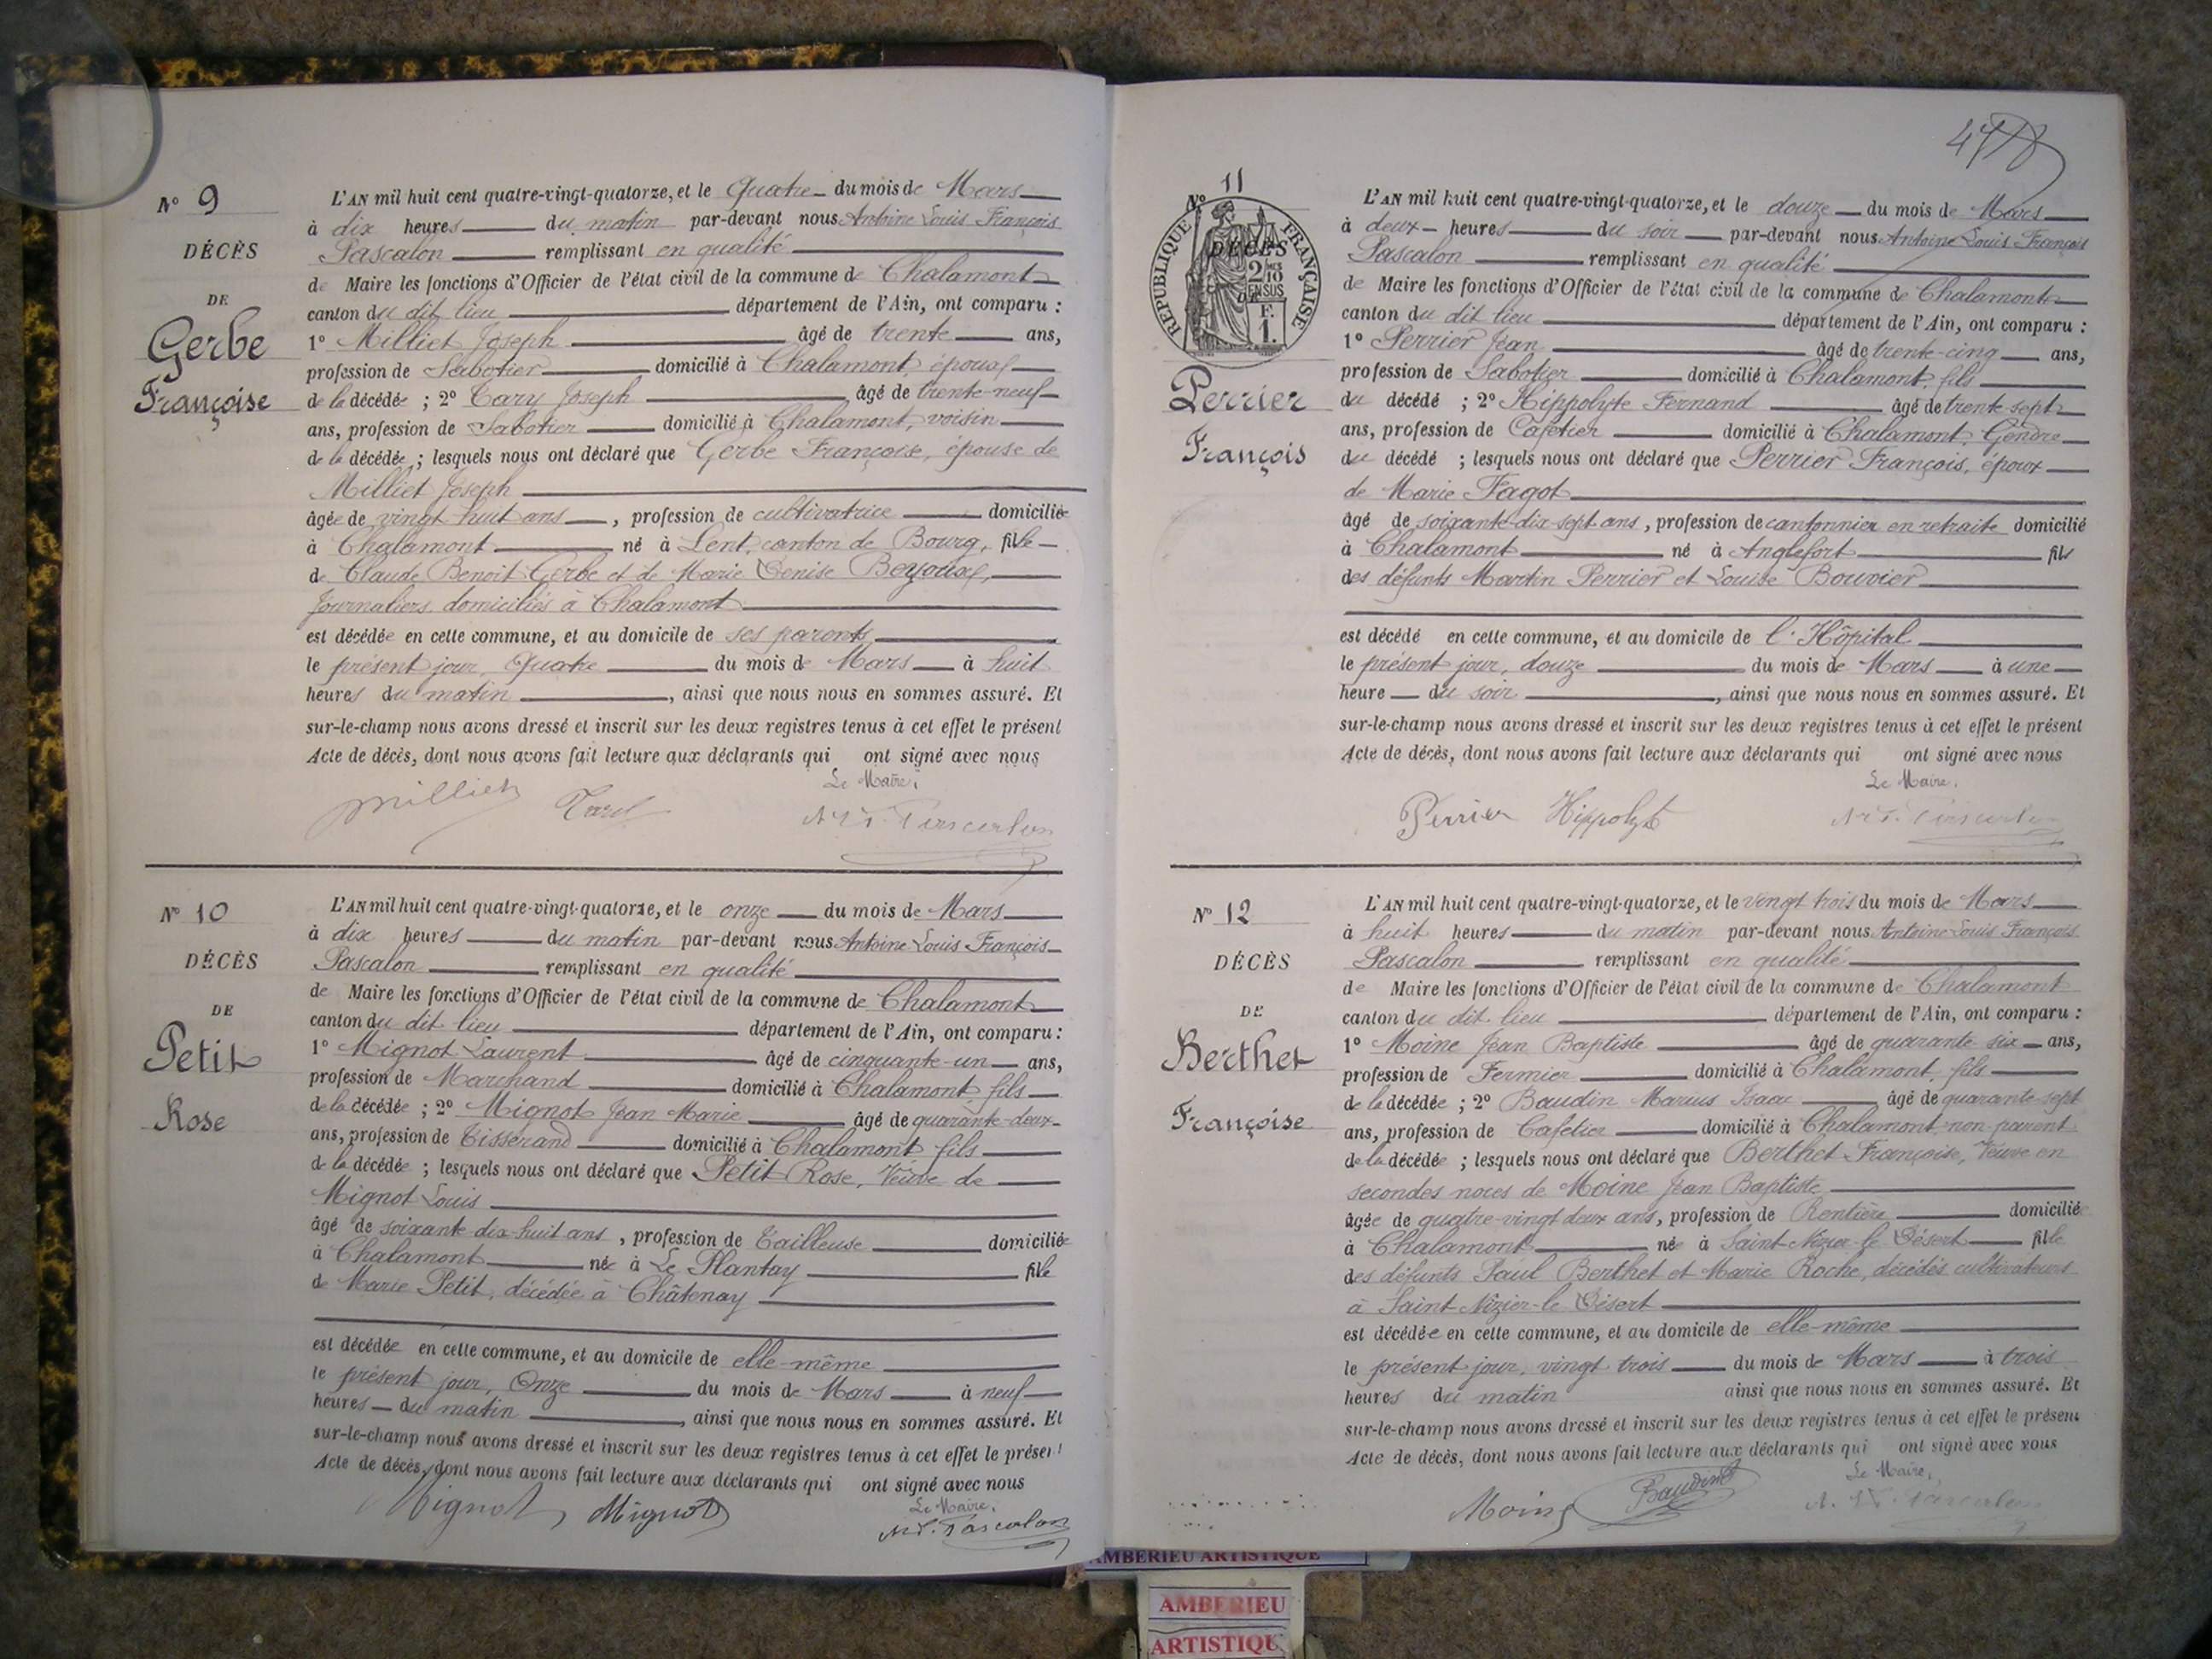 N° 9
DÉCÈS
DE
Gerbe
Françoise
L'AN mil huit cent quatre-vingt-quatorze, et le Quatre du mois de Mars
à dix heures du matin par-devant nous Antoine Louis François
Pascalon remplissant en qualité
de Maire les fonctions d'Officier de l'état civil de la commune de Chalamont
canton du dit lieu département de l'Ain, ont comparu :
1° Milliet Joseph âgé de trente ans,
profession de Sabotier domicilié à Chalamont, époux
de la décédée ; 2° Tary Joseph âgé de trente-neuf
ans, profession de Sabotier domicilié à Chalamont, voisin
de la décédée ; lesquels nous ont déclaré que Gerbe Françoise, épouse de
Milliet Joseph
âgée de vingt huit ans, profession de cultivatrice domiciliée
à Chalamont né à Lent, canton de Bourg, fille
de Claude Benoit Gerbe et de Marie Denise Beyoux,
Journaliers domiciliés à Chalamont
est décédée en cette commune, et au domicile de ses parents
le présent jour, Quatre du mois de Mars à huit
heures du matin, ainsi que nous nous en sommes assuré. Et
sur-le-champ nous avons dressé et inscrit sur les deux registres tenus à cet effet le présent
Acte de décès, dont nous avons fait lecture aux déclarants qui ont signé avec nous
Le Maire,
Milliet
N° 10
DÉCÈS
DE
Petit
Rose
L'AN mil huit cent quatre-vingt-quatorze, et le onze du mois de Mars
à dix heures du matin par-devant nous Antoine Louis François
Pascalon remplissant en qualité
de Maire les fonctions d'Officier de l'état civil de la commune de Chalamont
canton du dit lieu département de l'Ain, ont comparu :
1° Mignot Laurent âgé de cinquante-un ans,
profession de Marchand domicilié à Chalamont fils
de la décédée ; 2° Mignot Jean Marie âgé de quarante-deux
ans, profession de Tisserand domicilié à Chalamont fils
de la décédée ; lesquels nous ont déclaré que Petit Rose, Veuve de
Mignot Louis
âgé de soixante dix-huit ans, profession de Tailleuse domiciliée
à Chalamont née à Le Plantay fille
de Marie Petit, décédée à Châtenay
est décédée en cette commune, et au domicile de elle-même
le présent jour, Onze du mois de Mars à neuf
heures du matin, ainsi que nous nous en sommes assuré. Et
sur-le-champ nous avons dressé et inscrit sur les deux registres tenus à cet effet le présent
Acte de décès, dont nous avons fait lecture aux déclarants qui ont signé avec nous
Le Maire,
Mignot, Mignot Pascalon
N° 11
RÉPUBLIQUE FRANÇAISE
DÉCÈS
2/10 EN SUS
F. 1.
Perrier
François
L'AN mil huit cent quatre-vingt-quatorze, et le douze du mois de Mars
à deux heures du soir par-devant nous Antoine Louis François
Pascalon remplissant en qualité
de Maire les fonctions d'Officier de l'état civil de la commune de Chalamont
canton du dit lieu département de l'Ain, ont comparu :
1° Perrier Jean âgé de trente-cinq ans,
profession de Sabotier domicilié à Chalamont, fils
du décédé ; 2° Hippolyte Fernand âgé de trente sept
ans, profession de Cafetier domicilié à Chalamont, Gendre
du décédé ; lesquels nous ont déclaré que Perrier François, époux
de Marie Fagot
âgé de soixante-dix-sept ans, profession de cantonnier en retraite domicilié
à Chalamont né à Anglefort fils
des défunts Martin Perrier et Louise Bouvier
est décédé en cette commune, et au domicile de l'Hôpital
le présent jour, douze du mois de Mars à une
heure du soir, ainsi que nous nous en sommes assuré. Et
sur-le-champ nous avons dressé et inscrit sur les deux registres tenus à cet effet le présent
Acte de décès, dont nous avons fait lecture aux déclarants qui ont signé avec nous
Le Maire,
Perrier Hippolyte
N° 12
DÉCÈS
DE
Berthet
Françoise
L'AN mil huit cent quatre-vingt-quatorze, et le vingt trois du mois de Mars
à huit heures du matin par-devant nous Antoine Louis François
Pascalon remplissant en qualité
de Maire les fonctions d'Officier de l'état civil de la commune de Chalamont
canton du dit lieu département de l'Ain, ont comparu :
1° Moine Jean Baptiste âgé de quarante six ans,
profession de Fermier domicilié à Chalamont, fils
de la décédée ; 2° Baudin Marius Isaac âgé de quarante-sept
ans, profession de Cafetier domicilié à Chalamont, non parent
de la décédée ; lesquels nous ont déclaré que Berthet Françoise, Veuve en
secondes noces de Moine Jean Baptiste
âgée de quatre-vingt deux ans, profession de Rentière domiciliée
à Chalamont née à Saint-Nizier-le Désert fille
des défunts Paul Berthet et Marie Roche, décédés cultivateurs
à Saint-Nizier-le Désert
est décédée en cette commune, et au domicile de elle-même
le présent jour, vingt trois du mois de Mars à trois
heures du matin ainsi que nous nous en sommes assuré. Et
sur-le-champ nous avons dressé et inscrit sur les deux registres tenus à cet effet le présent
Acte de décès, dont nous avons fait lecture aux déclarants qui ont signé avec nous
Le Maire,
Moine Baudin
AMBERIEU ARTISTIQUE
AMBERIEU
ARTISTIQU